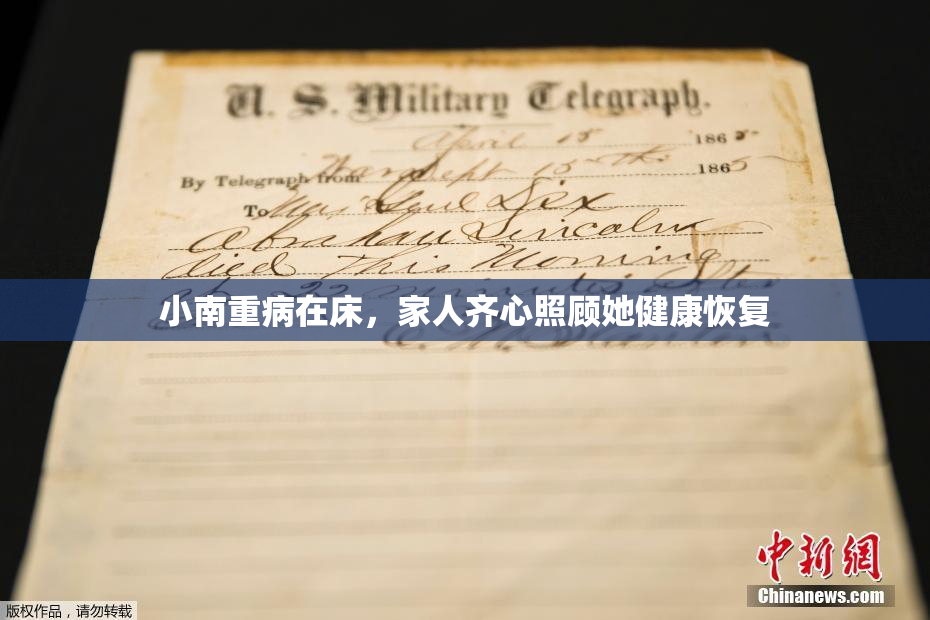 U. S. Military Telegraph.
April 15 1865
By Telegraph from War Dept 15th 1865
To Maj Genl Dix
Abraham Lincoln
died This Morning
at 22 minutes after
小南重病在床，家人齐心照顾她健康恢复
E. M. Stanton
中新網
Chinanews.com
版权作品，请勿转载